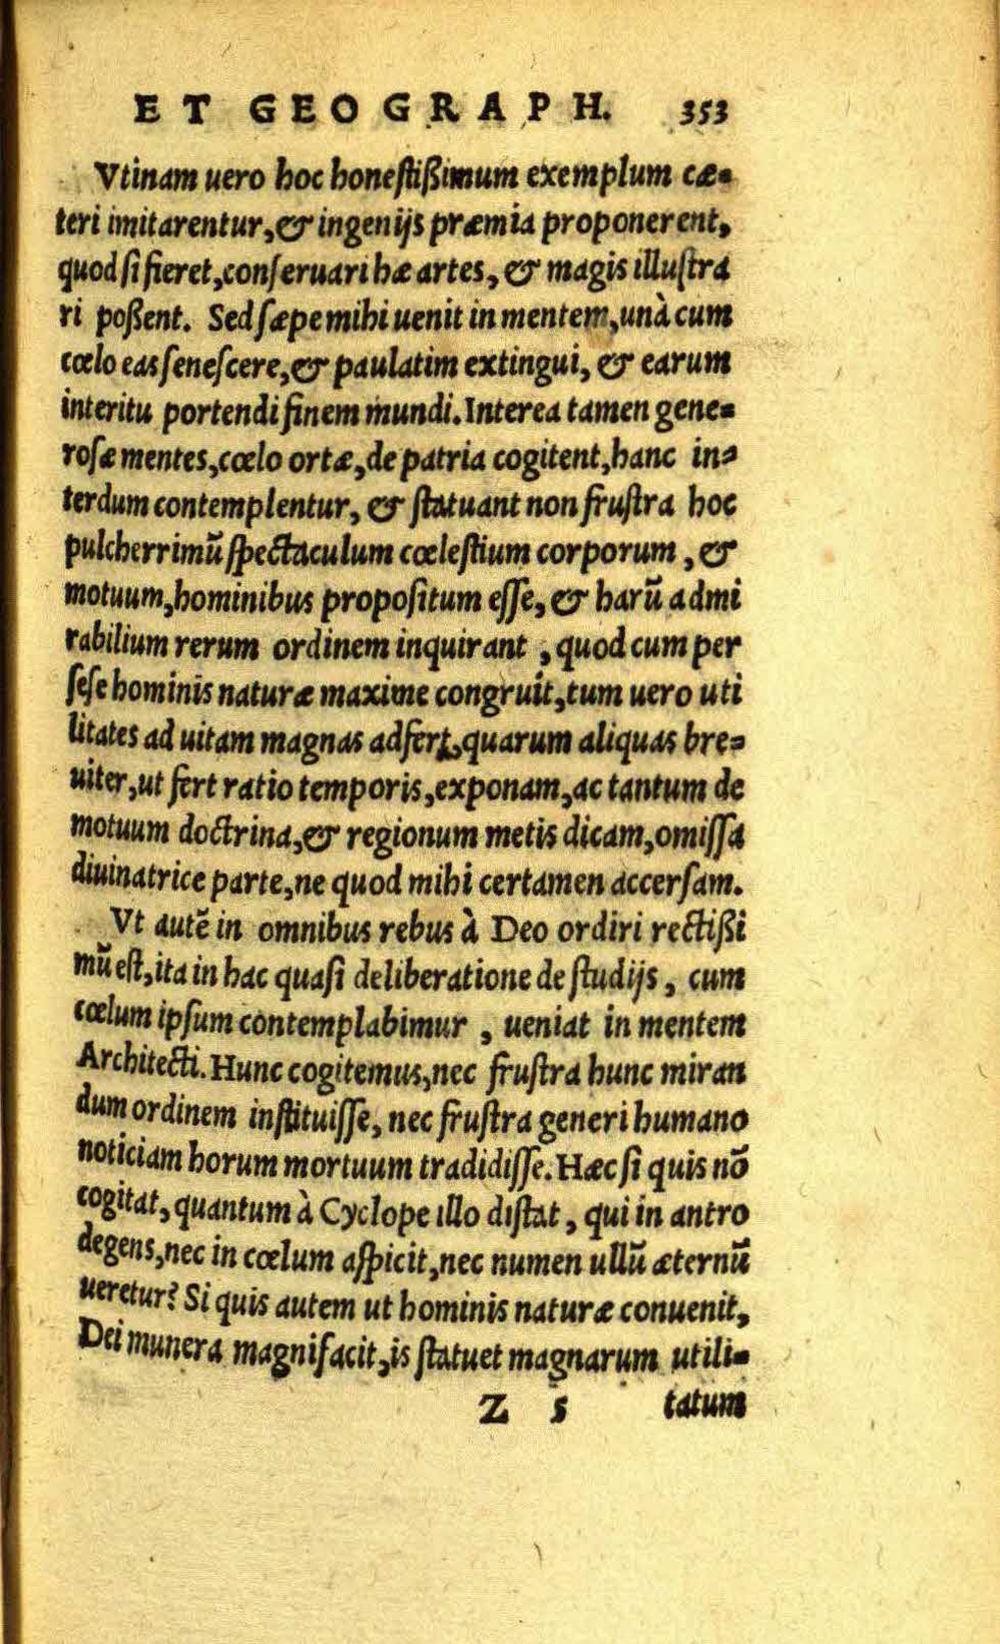 ET GEOGRAPH. 353
Vtinam uero hoc honestißimum exemplum cæ-
teri imitarentur, & ingenijs præmia proponerent,
quod si fieret, conseruari hæ artes, & magis illustra
ri poßent. Sed sæpe mihi uenit in mentem, unà cum
cœlo eas senescere, & paulatim extingui, & earum
interitu portendi finem mundi. Interea tamen gene-
rosæ mentes, cœlo ortæ, de patria cogitent, hanc in-
terdum contemplentur, & statuant non frustra hoc
pulcherrimũ spectaculum cœlestium corporum, &
motuum, hominibus propositum esse, & harũ admi
rabilium rerum ordinem inquirant, quod cum per
sese hominis naturæ maxime congruit, tum uero uti
litates ad uitam magnas adfert, quarum aliquas bre-
uiter, ut fert ratio temporis, exponam, ac tantum de
motuum doctrina, & regionum metis dicam, omissa
diuinatrice parte, ne quod mihi certamen accersam.
Vt autẽ in omnibus rebus à Deo ordiri rectißi
mũ est, ita in hac quasi deliberatione de studijs, cum
cœlum ipsum contemplabimur, ueniat in mentem
Architecti. Hunc cogitemus, nec frustra hunc miran
dum ordinem instituisse, nec frustra generi humano
noticiam horum mortuum tradidisse. Hæc si quis nõ
cogitat, quantum à Cyclope illo distat, qui in antro
degens, nec in cœlum aspicit, nec numen ullũ æternũ
ueretur? Si quis autem ut hominis naturæ conuenit,
Dei munera magnifacit, is statuet magnarum utili-
Z 5 tatum